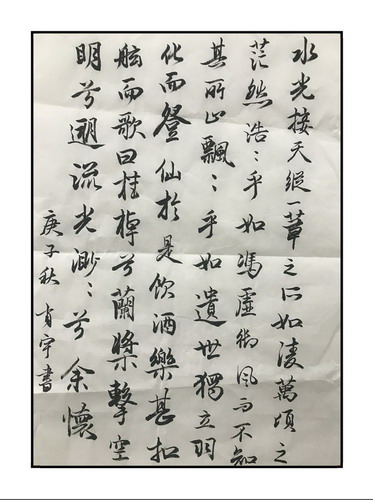 水光接天縱一葦之所如淩萬頃之
茫然浩〻乎如馮虛御風而不知
其所止飄〻乎如遺世獨立羽
化而登仙於是飲酒樂甚扣
舷而歌曰桂棹兮蘭槳擊空
明兮遡流光渺〻兮余懷
庚子秋 宇書